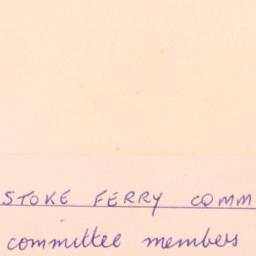 STOKE FERRY COMM
committee members